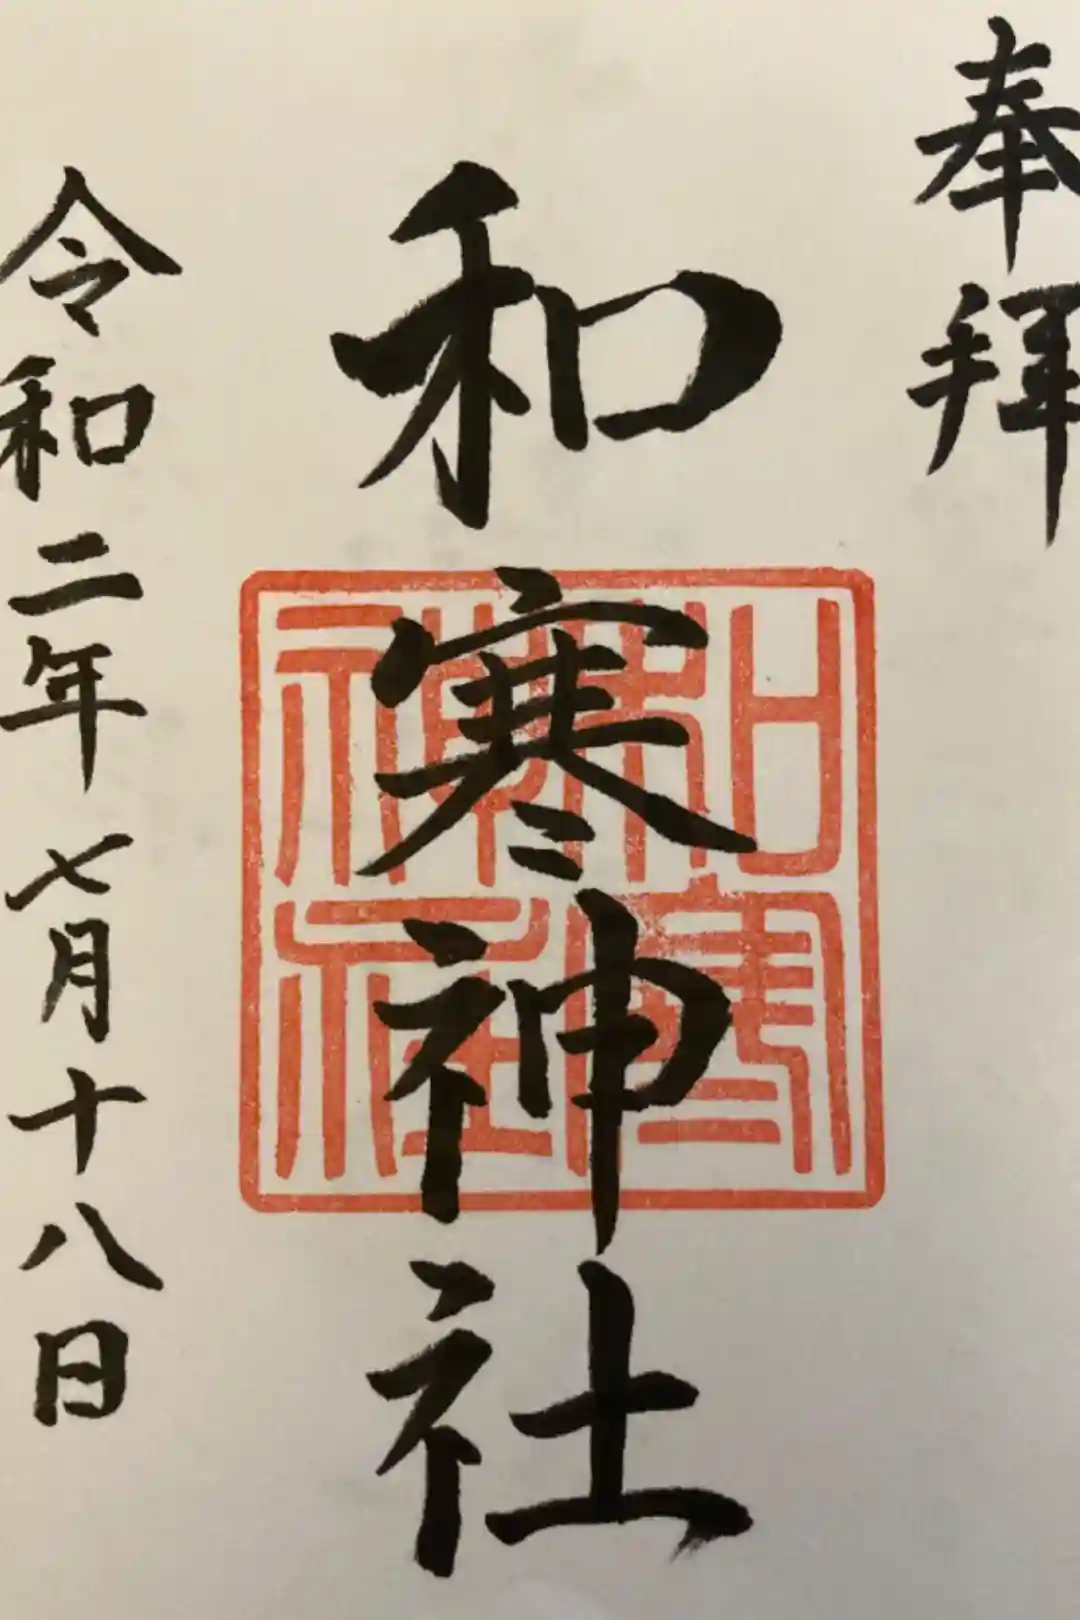 奉拝
和寒神社
和寒神社
令和二年七月十八日